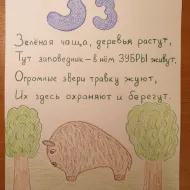 З З
Зелёная чаща, деревья растут,
Тут заповедник – в нём ЗУБРЫ живут.
Огромные звери травку жуют,
Их здесь охраняют и берегут.